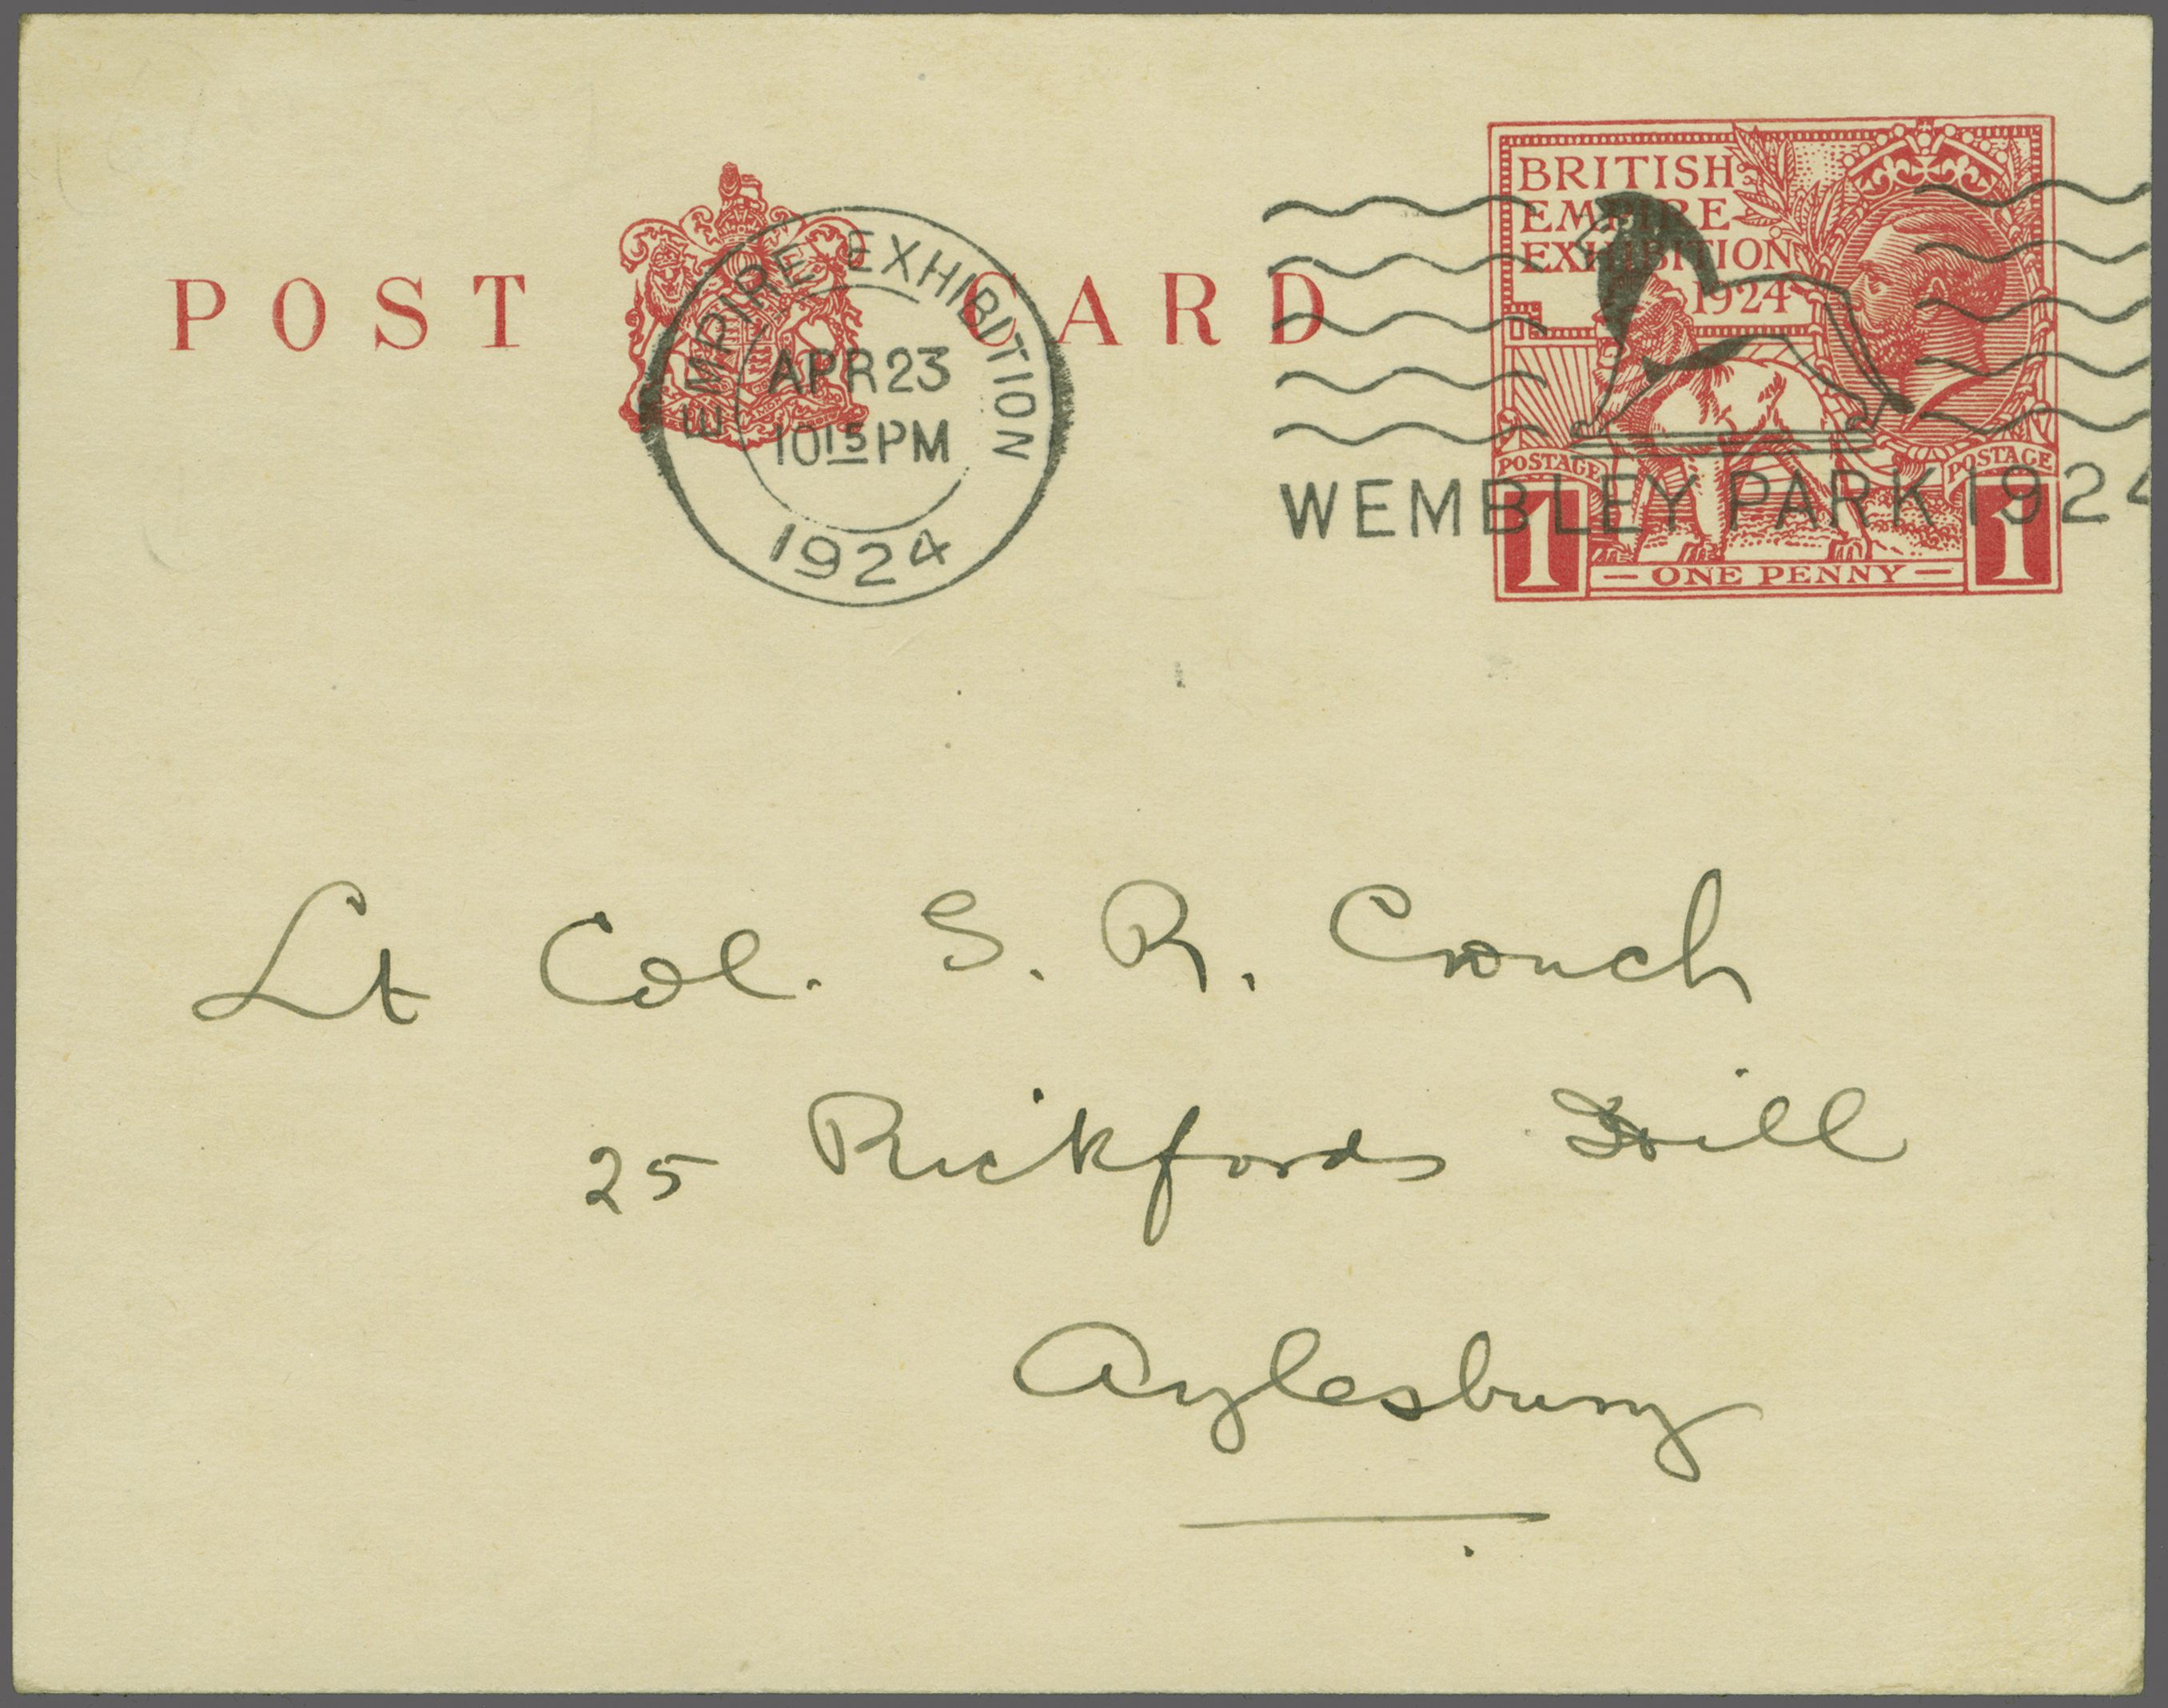 POST CARD
EMPIRE EXHIBITION
APR 23
10 15 PM
1924
BRITISH
EMPIRE
EXHIBITION
1924
POSTAGE POSTAGE
1 ONE PENNY 1
WEMBLEY PARK 1924
Lt Col. S. R. Crouch
25 Rickfords Hill
Aylesbury